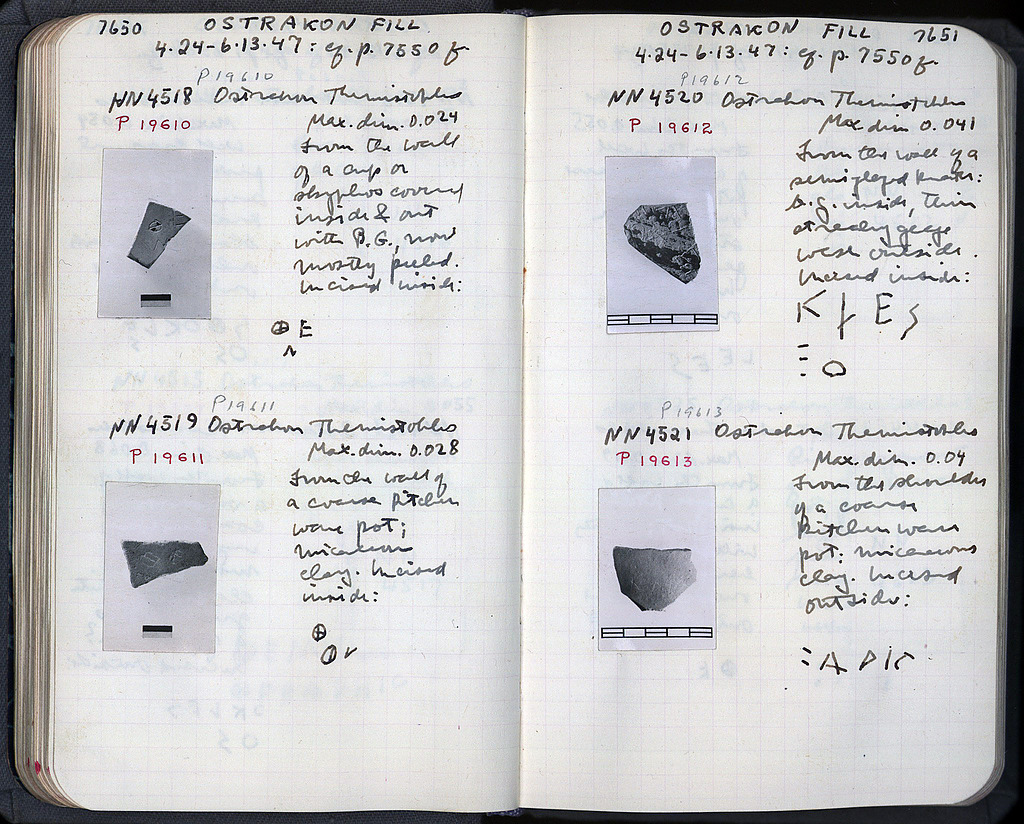 7650 OSTRAKON FILL
4.24-6.13.47: cf. p. 7550 f.
P19610
NN 4518 Ostrakon Themistokles
P 19610 Max. dim. 0.024
From the wall
of a cup or
skyphos covered
inside & out
with B.G., now
mostly peeled.
Incised inside:
⊕ E
P19611
NN 4519 Ostrakon Themistokles
P 19611 Max. dim. 0.028
From the wall of
a coarse kitchen
ware pot;
micaceous
clay. Incised
inside:
⊕
OSTRAKON FILL 7651
4.24-6.13.47: cf. p. 7550 f.
P19612
NN 4520 Ostrakon Themistokles
P 19612 Max dim 0.041
From the wall of a
semiglazed krater:
b.g. inside, thin
streaky glaze
wash outside.
Incised inside:
O
P19613
NN 4521 Ostrakon Themistokles
P 19613 Max. dim. 0.04
From the shoulder
of a coarse
kitchen ware
pot: micaceous
clay. Incised
outside: